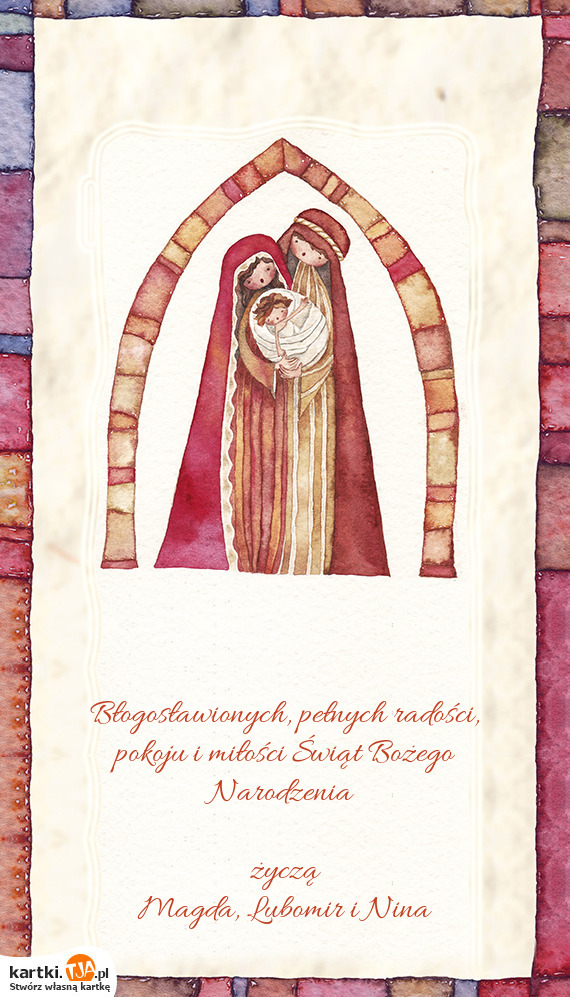 Błogosławionych, pełnych radości,
pokoju i miłości Świąt Bożego
Narodzenia
życzą
Magda, Lubomir i Nina
kartki.TJA.pl
Stwórz własną kartkę